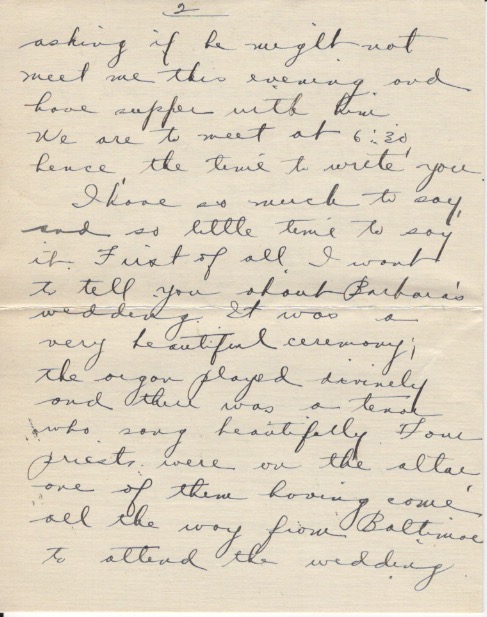 2
asking if he might not
meet me this evening and
have supper with him
We are to meet at 6:30,
hence, the time to write you.
I have so much to say,
and so little time to say
it. First of all, I want
to tell you about Barbara's
wedding. It was a
very beautiful ceremony;
the organ played divinely
and there was a tenor
who sang beautifully. Four
priests were on the altar
one of them having come
all the way from Baltimore
to attend the wedding.